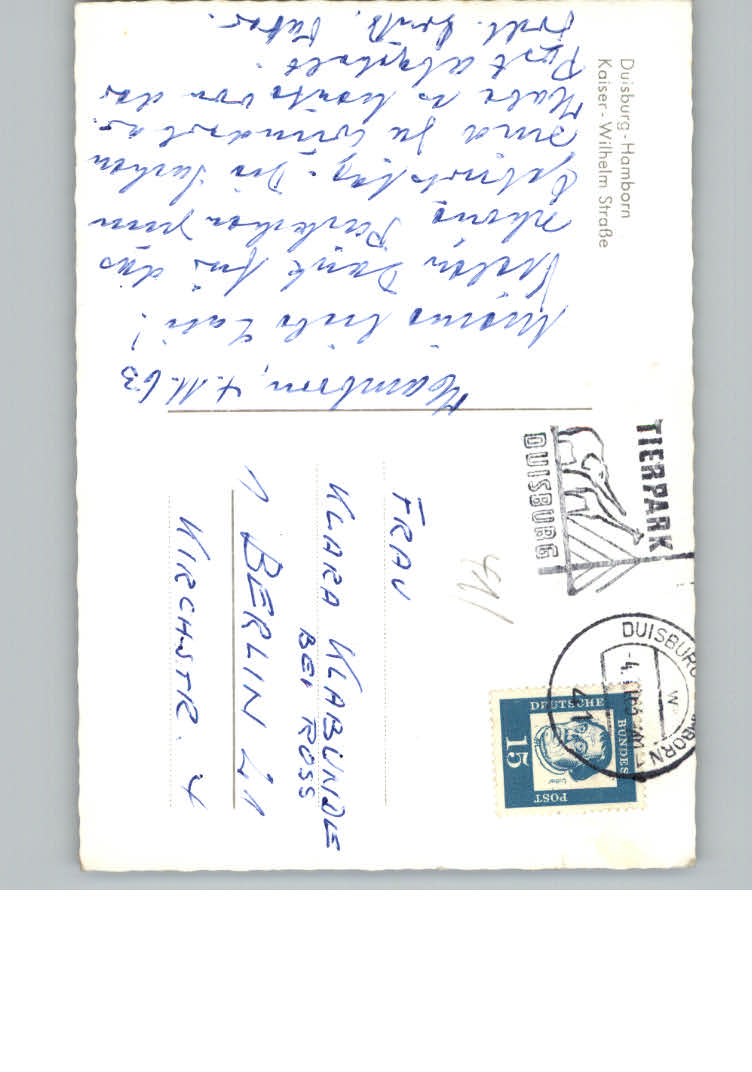 Duisburg-Hamborn
Kaiser-Wilhelm Straße
Hamborn, 4.11.63
Meine liebe
Vielen Dank für das
schöne Päckchen zum
Geburtstag. Die Sachen
sind ja wunderbar.
Habe es heute von der
Post abgeholt.
Vater.
TIERPARK
DUISBURG
DUISBURG HAMBORN
DEUTSCHE
BUNDES
POST
15
Luther
FRAU
KLARA KLABUNDE
BEI ROSS
1 BERLIN 21
KIRCHSTR. 4